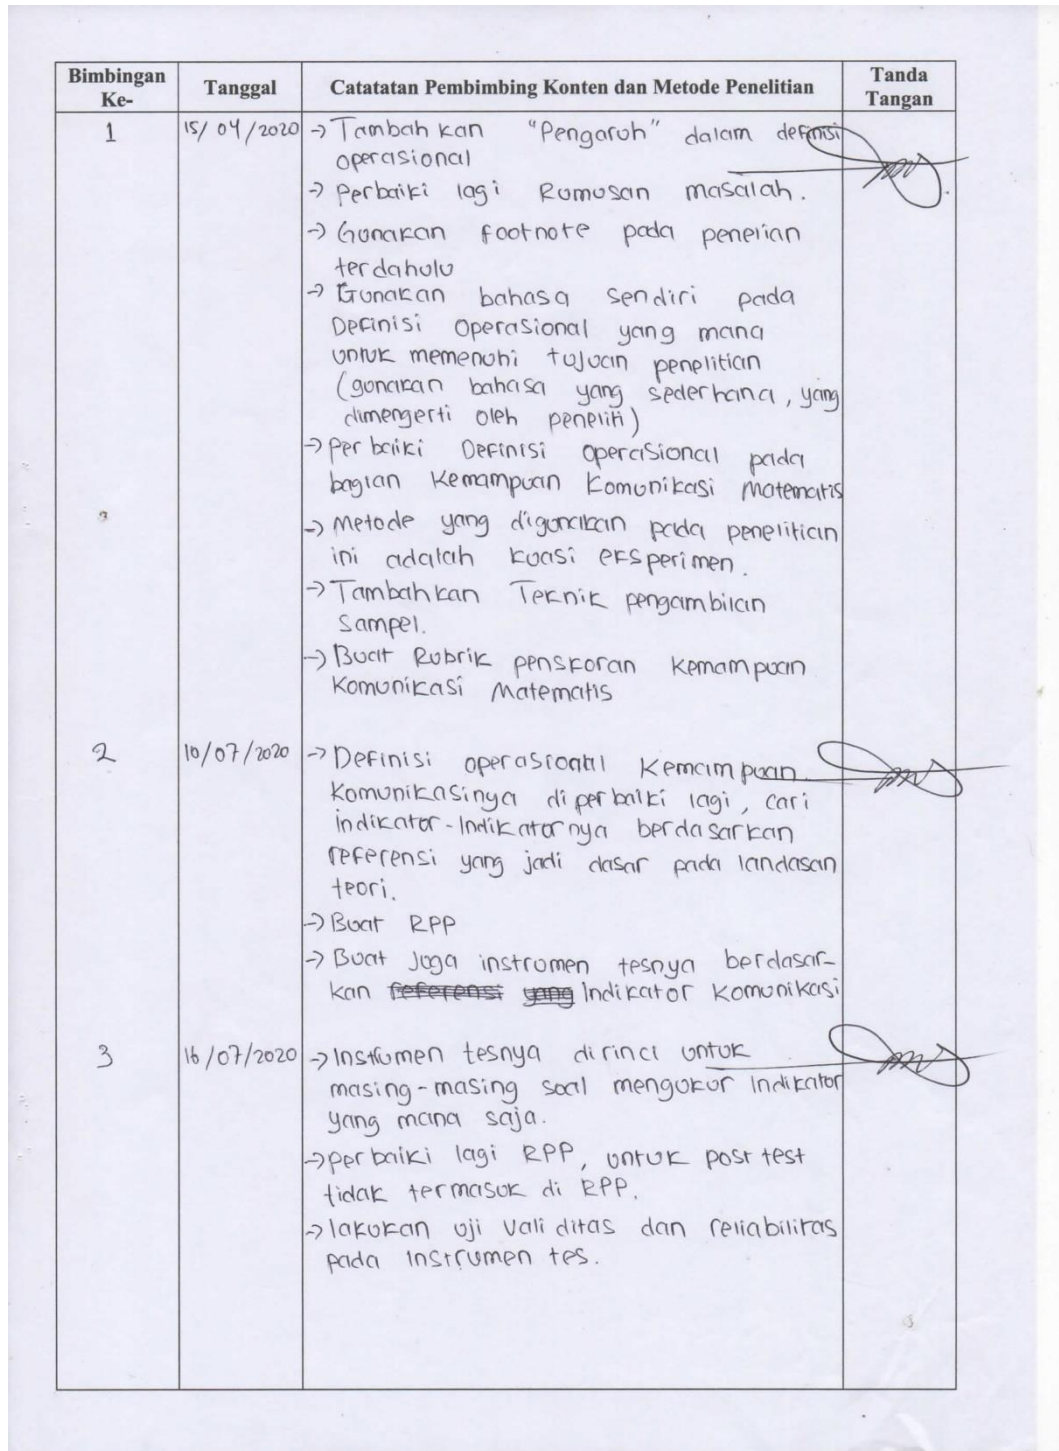 Bimbingan Ke-
Tanggal
Catatatan Pembimbing Konten dan Metode Penelitian
Tanda Tangan
1 15/04/2020 → Tambahkan "Pengaruh" dalam definisi
operasional
→ Perbaiki lagi Rumusan masalah.
→ Gunakan footnote pada penerian
terdahulu
→ Gunakan bahasa sendiri pada
Definisi Operasional yang mana
untuk memenuhi tujuan penelitian
(gunakan bahasa yang sederhana, yang
dimengerti oleh peneliti)
→ Perbaiki Definisi operasional pada
bagian Kemampuan Komunikasi Matematis
→ Metode yang digunakan pada penelitian
ini adalah kuasi eksperimen.
→ Tambahkan Teknik pengambilan
Sampel.
→ Buat Rubrik penskoran Kemampuan
Komunikasi Matematis
2 10/07/2020 → Definisi operasional Kemampuan
Komunikasinya diperbaiki lagi, cari
indikator-Indikatornya berdasarkan
referensi yang jadi dasar pada landasan
teori.
→ Buat RPP
→ Buat Juga instrumen tesnya berdasar-
kan referensi yang Indikator Komunikasi
3 16/07/2020 → Instrumen tesnya dirinci untuk
masing-masing soal mengukur Indikator
yang mana saja.
→ perbaiki lagi RPP, untuk post test
tidak termasuk di RPP.
→ lakukan uji validitas dan reliabilitas
pada Instrumen tes.